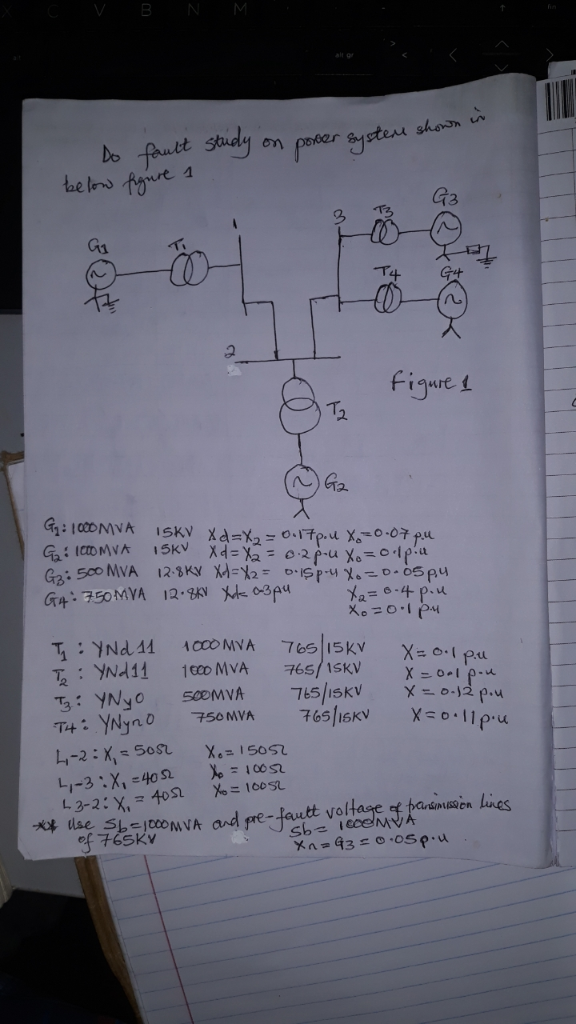 Do fault study on power system shown in
below figure 1
G1
T1
1
3
T3
G3
T4
G4
2
Figure 1
T2
G2
G1: 1000MVA 15KV Xd=X2 = 0.17p.u X0=0.07 p.u
G2: 1000MVA 15KV Xd=X2 = 0.2p.u X0=0.1p.u
G3: 500 MVA 12.8KV Xd=X2= 0.15p.u X0=0.05p.u
G4: 750MVA 12.8KV Xd=0.3pu X2=0.4 p.u
X0=0.1 p.u
T1: YNd11 1000MVA 765/15KV X=0.1 p.u
T2: YNd11 1000 MVA 765/15KV X=0.1 p.u
T3: YNy0 500MVA 765/15KV X=0.12 p.u
T4: YNyn0 750MVA 765/15KV X=0.11p.u
L1-2: X1=50Ω X0=150Ω
L1-3: X1=40Ω X0=100Ω
L3-2: X1=40Ω X0=100Ω
** Use Sb=1000MVA and pre-fault voltage of transmission lines
of 765KV Sb=1000MVA
Xn=G3=0.05p.u